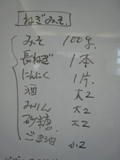 ねぎみそ
みそ 100g.
長ねぎ 1本
にんにく 1片.
酒 大2
みりん 大2
砂糖 大2
ごま油 小2